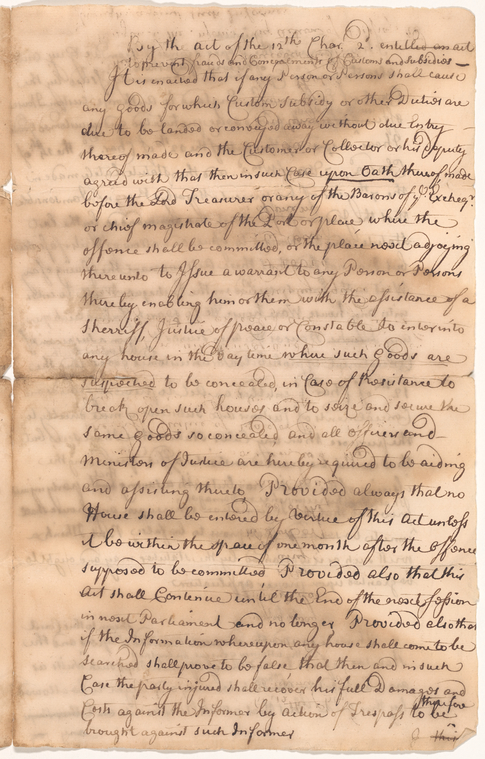 By the act of the 12th Char. 2d. entitled an act
to prevent frauds and Concealments of Customs and subsidies
It is enacted that if any Person or Persons shall cause
any goods for which Custom Subsidy or other Duties are
due to be landed or conveyed away without due Entry
thereof made and the Customer or Collector or his deputy
agreed with that then in such Case upon Oath thereof made
before the Lord Treasurer or any of the Barons of ye Excheqr
or chief magistrate of the Port or place where the
offence shall be committed, or the place next adjoying
thereunto to Issue a warrant to any Person or Persons
thereby enabling him or them with the assistance of a
Sherriff, Justice of peace or Constable to enter into
any house in the Day time where such Goods are
suspected to be concealed, in Case of Resistance to
break open such houses and to seize and secure the
same Goods so concealed and all officers and
Ministers of Justice are hereby required to be aiding
and assisting thereto Provided always that no
House shall be entered by Virtue of this Act unless
it be within the space of one month after the offence
supposed to be committed Provided also that this
Act shall Continue until the End of the next session
in next Parliament and no longer Provided also that
if the Information whereupon any house shall come to be
searched shall prove to be false that then and in such
Case the party injured shall recover his full Damages and
Costs against the Informer by action of Trespass therefore to be
brought against such Informer